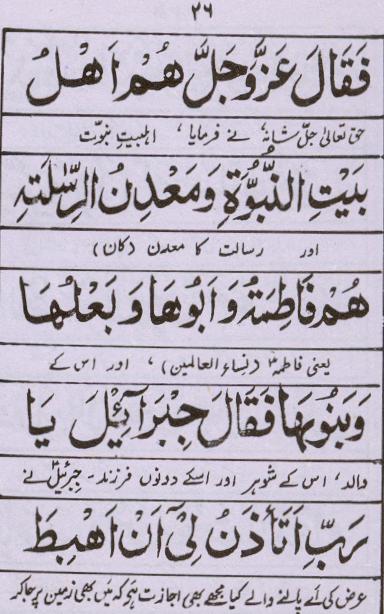 ۲۶
فَقَالَ عَزَّوَجَلَّ هُمْ اَهْلُ
حق تعالیٰ جلّ شانہٗ نے فرمایا، اہلبیتِ نبوّت
بَيْتِ النُّبُوَّةِ وَمَعْدِنُ الرِّسٰلَتِہِ
اور رسالت کا معدن (کان)
هُمْ فَاطِمَةُ وَاَبُوهَا وَبَعْلُهَا
یعنی فاطمہؑ (نساء العالمین)، اور اس کے
وَبَنُوهَا فَقَالَ جِبْرَآئِيْلَ يَا
والد، اس کے شوہر اور اسکے دونوں فرزند۔ جبرئیلؑ نے
رَبِّ اَتَأْذَنُ لِيْ اَنْ اَهْبِطَ
عرض کی اے پالنے والے کیا مجھے بھی اجازت ہے کہ میں بھی زمین پر جا کر